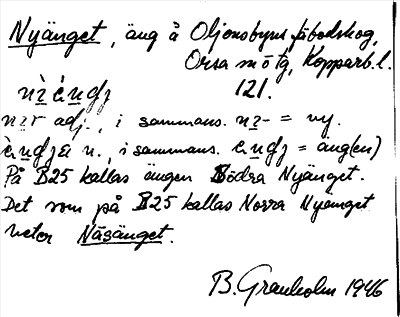 Nyänget, äng å Oljonsbyns fäbodskog,
Orsa sn o tg, Kopparb. l.
121.
adj., i sammans. = ny.
n., i sammans. = äng(en)
På B25 kallas ängen Södra Nyänget.
Det som på B25 kallas Norra Nyänget
heter Näsänget.
B. Granholm 1946